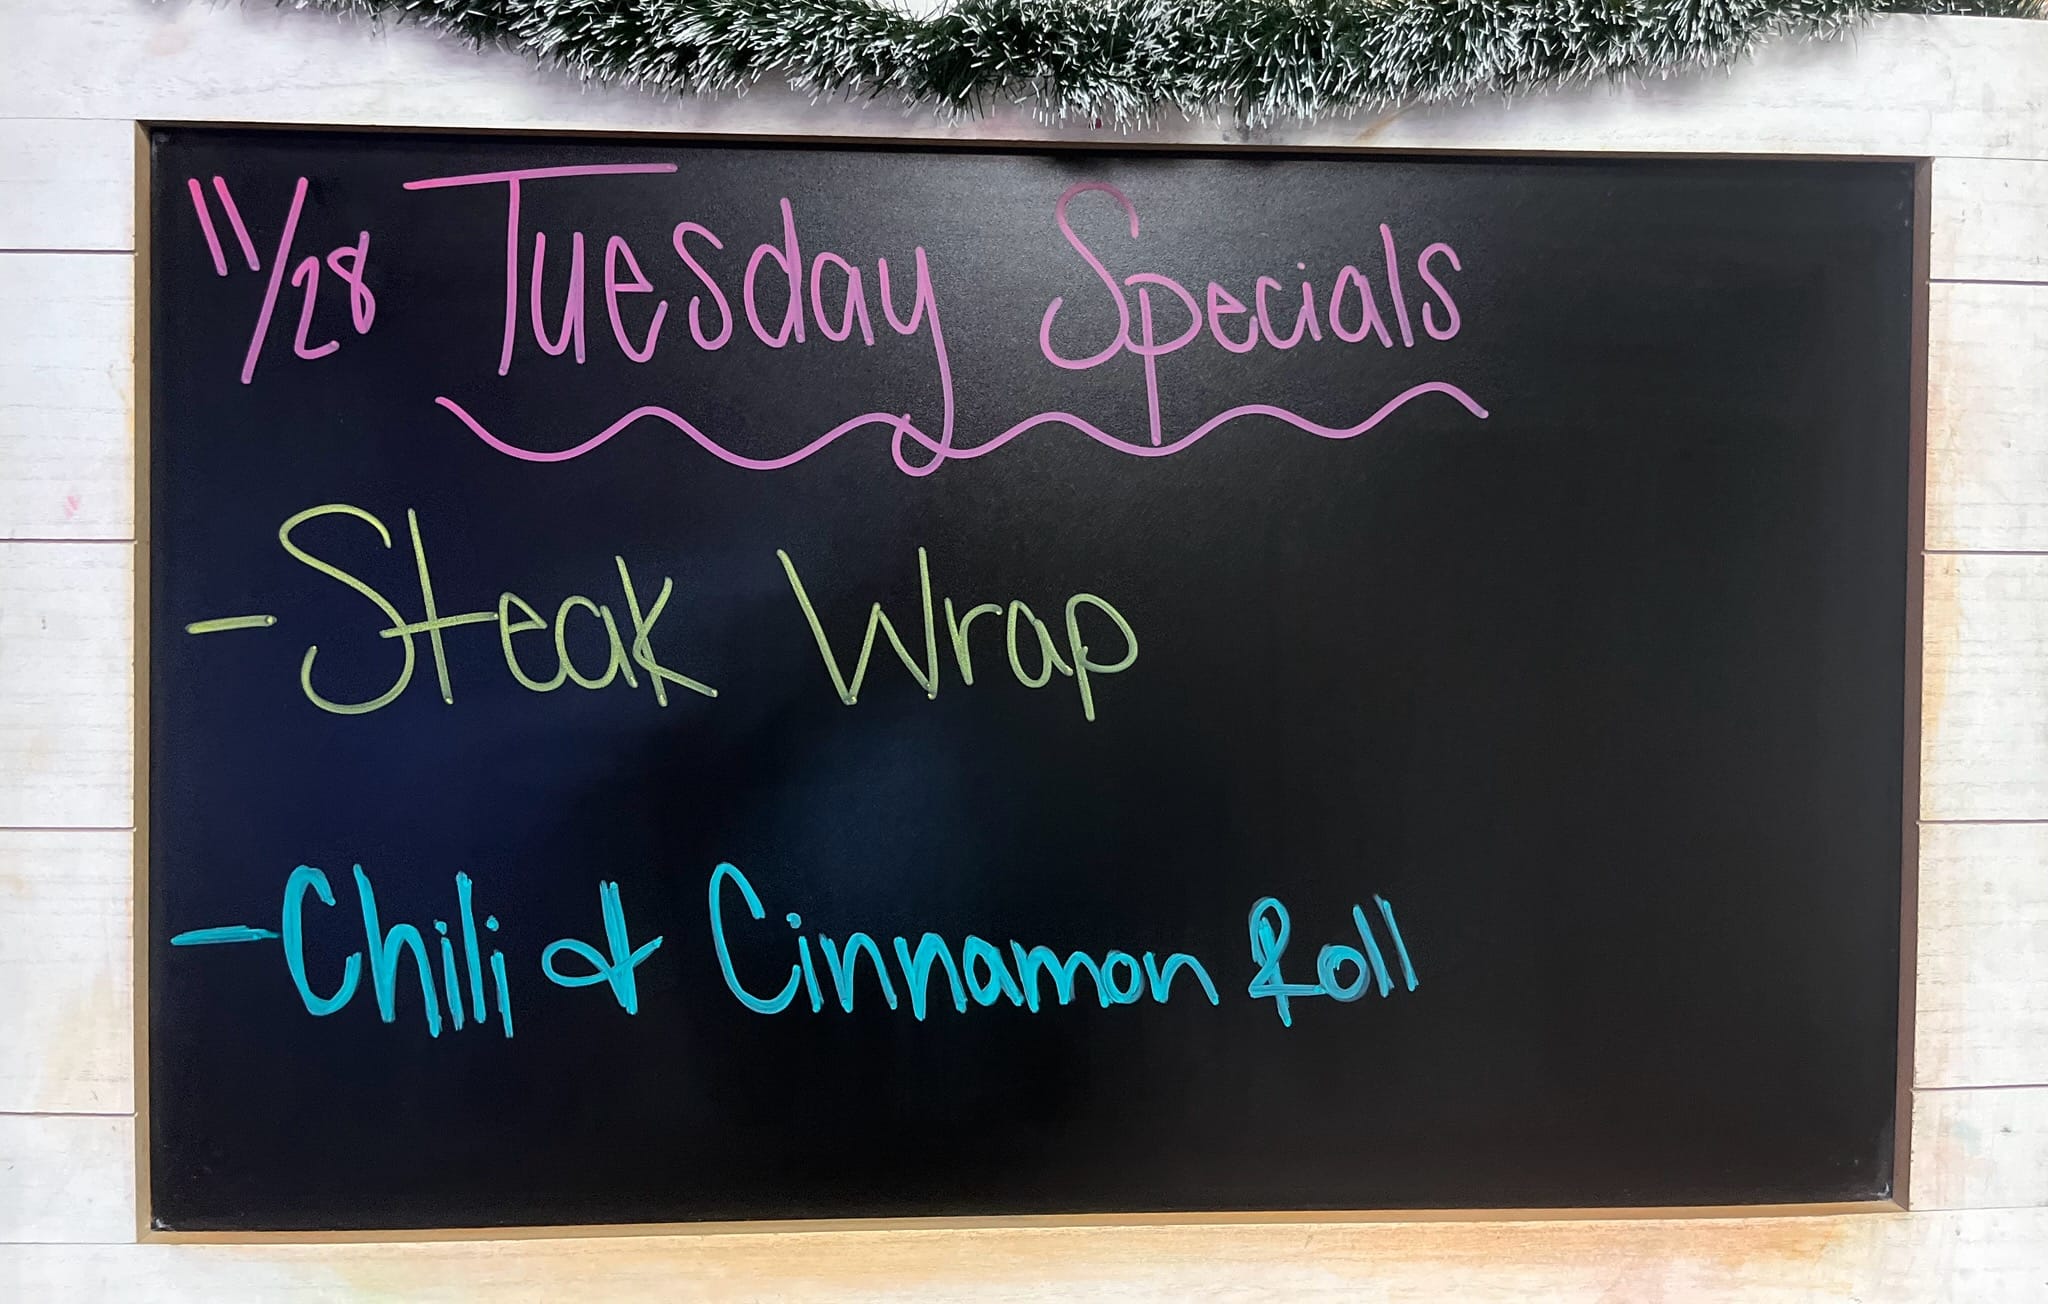 11/28 Tuesday Specials
- Steak Wrap
- Chili & Cinnamon Roll